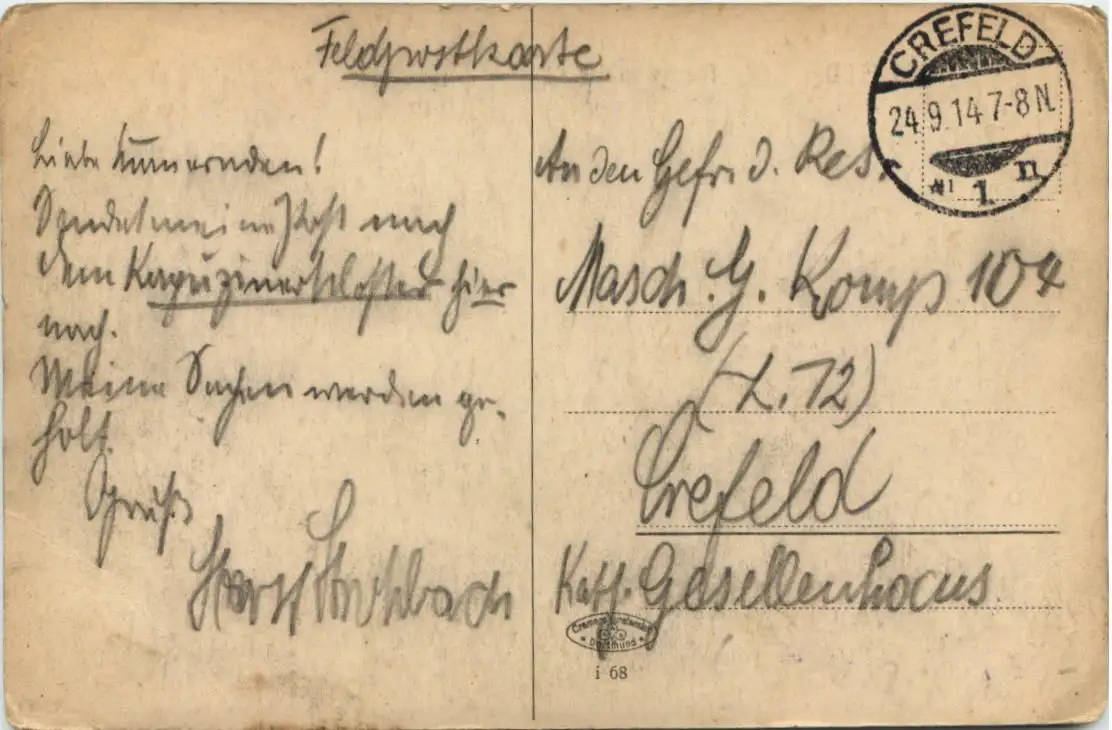 Feldpostkarte
CREFELD
24.9.14.7-8N.
1 n
Liebe Kameraden!
Sendet meine Post nach
dem Kapuzinerkloster hier
nach.
Meine Sachen werden ge-
holt.
Gruß
An den Gefr. d. Res.
Masch. G. Komp 104
Crefeld
Kath. Gesellenhaus
Dortmund
i 68